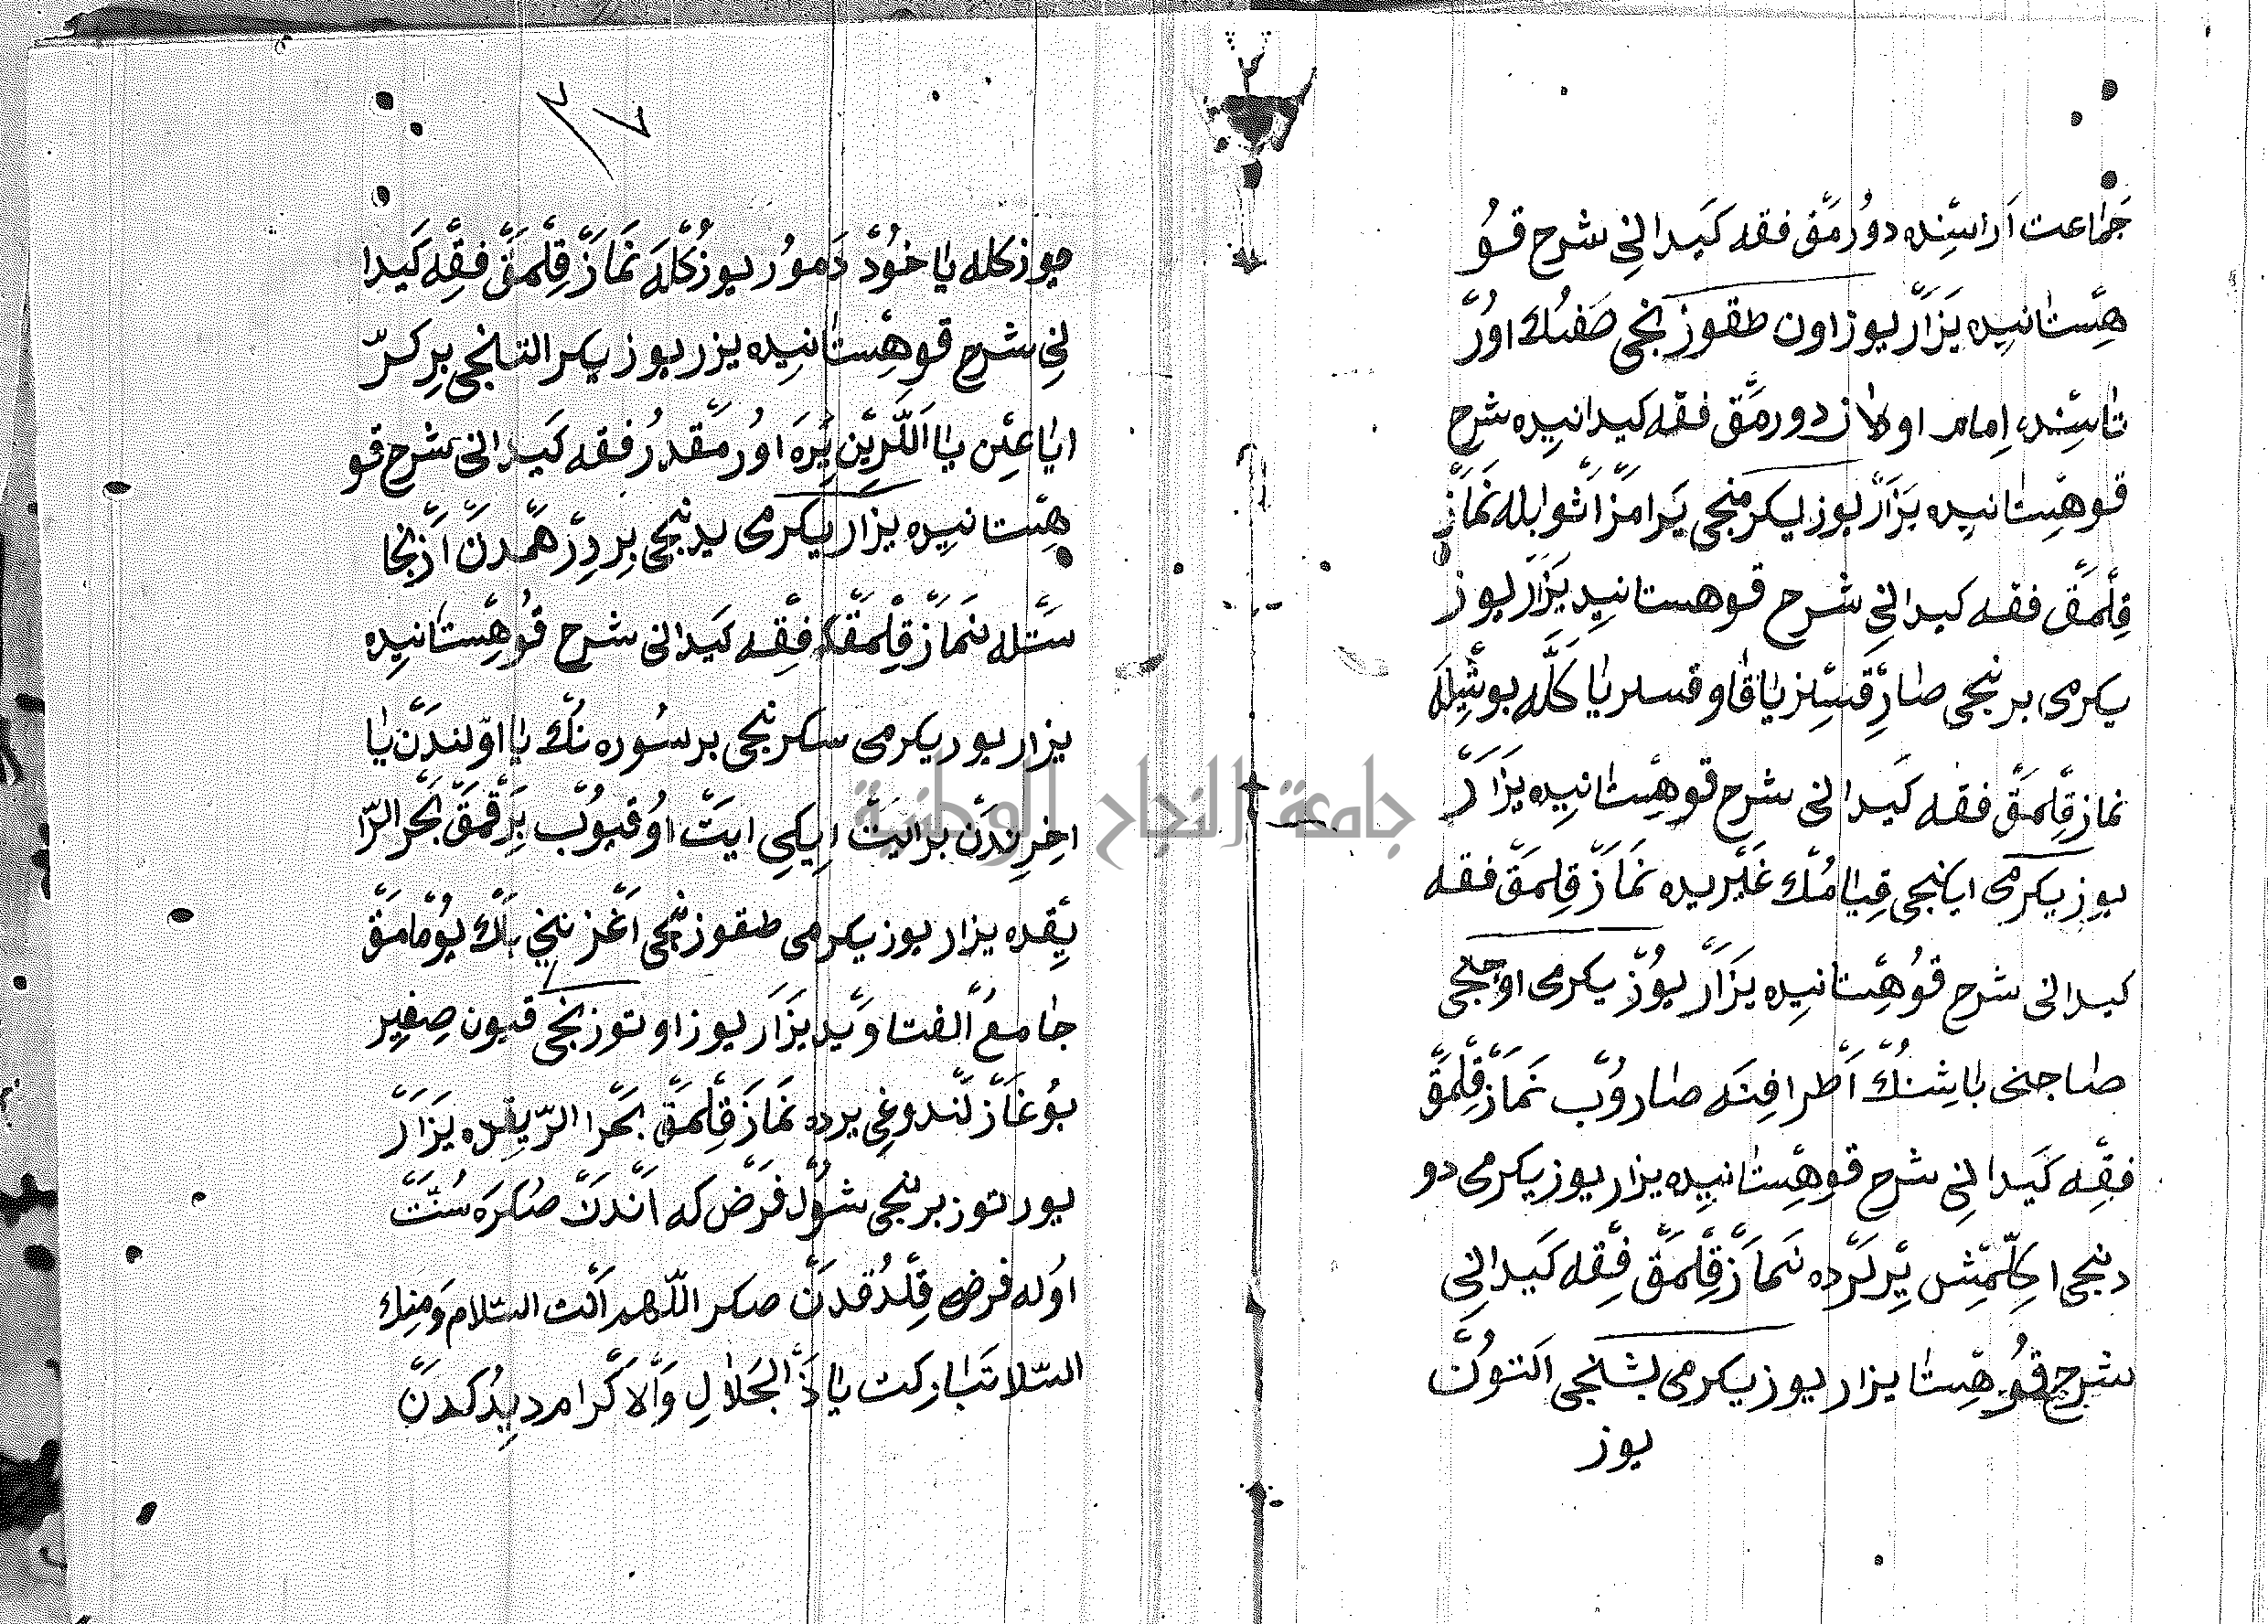 جماعت اراسنده دورمق فقه كيدانى شرح قو
هستانيده يزار يوز اون طقوزنجى صفنك اور
تاسنده امام اولان دورمق فقه كيدانيده شرح
قوهستانيده يزار يوز يكرمنجى يرامز اثوابله نماز
قلمق فقه كيدانى شرح قوهستانيد يزار يوز
يكرمى برنجى صارقسز ياقاوقسز يا كله بوشيله
نماز قلمق فقه كيدانى شرح قوهستانيده يزار
يوز يكرمى ايكنجى قيامك غيريده نماز قلمق فقه
كيدانى شرح قوهستانيده يزار يوز يكرمى اوجنجى
صاجنى باشنك اطرافنه صاروب نماز قلمق
فقه كيدانى شرح قوهستانيده يزار يوز يكرمى دو
دنجى اكلمش يرلرده نماز قلمق فقه كيدانى
شرح قوهستا يزار يوز يكرمى بشنجى التون
يوز
٢٧
يوزكله يا خود دمور يوزكله نماز قلمق فقه كيدا
نى شرح قوهستانيده يزر يوز يكر التنجى بر كر
اياعن يا اللرين يره اورمقدر فقه كيدانى شرح قو
هستانيده يزار يكرمى يدنجى بر درهمدن از نجا
ستله نماز قلمقد فقه كيدانى شرح قوهستانيده
يزار يور يكرمى سكزنجى بر سوره نك يا اولندن يا
اخرندن بر ايت ايكى ايت اوقيوب برقمق بحر الر
يقده يزار يوز يكرمى طقوزنجى اغزنى بك يومامق
جامع الفتاويد يزار يوز اوتوزنجى قيون صغير
بوغازلندوغى يرده نماز قلمق بحر الريقده يزار
يور توز برنجى شول فرض كه اندن صكره سنت
اوله فرض قلدقدن صكر اللهم انت السلام ومنك
السلا تباركت يا ذا الجلال والاكرام ديدكدن